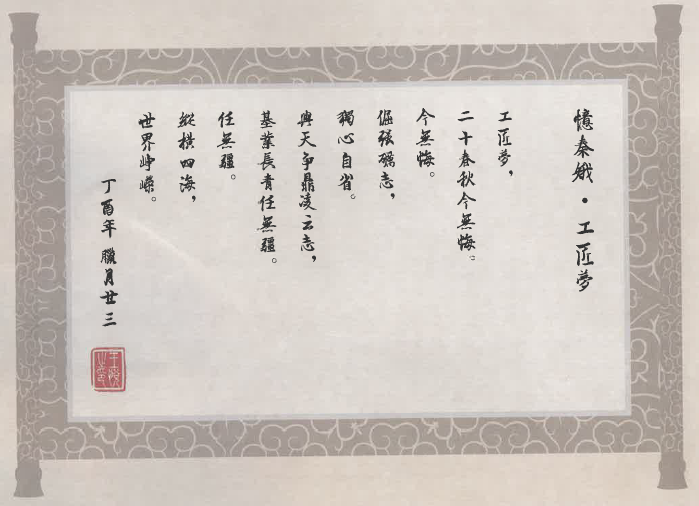 憶秦娥・工匠夢
工匠夢，
二十春秋今無悔。
今無悔。
倔强礪志，
獨心自省。
與天爭鼎凌云志，
基業長青任無疆。
任無疆。
縱横四海，
世界崢嶸。
丁酉年 臘月廿三